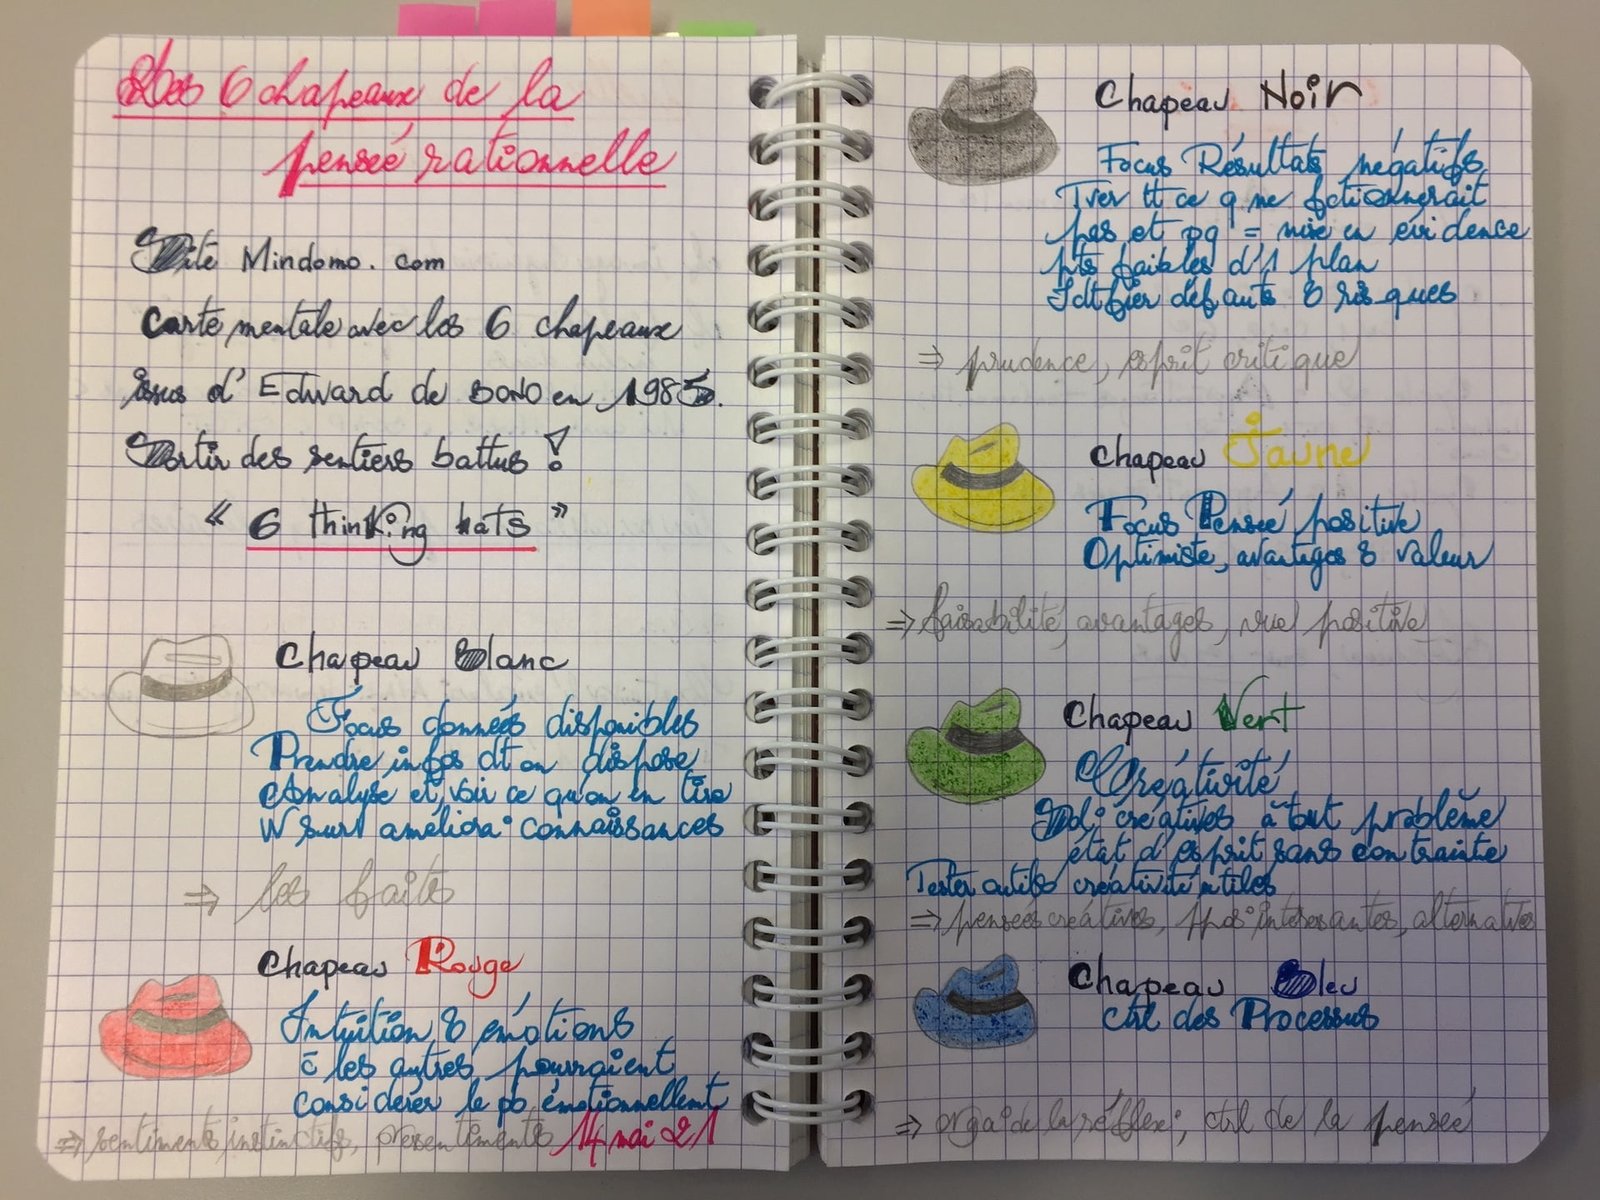 Les 6 chapeaux de la
pensée rationnelle
Site Mindomo.com
Carte mentale avec les 6 chapeaux
issus d'Edward de BONO en 1985.
Sortir des sentiers battus !
" 6 thinking hats "
Chapeau Blanc
Focus données disponibles
Prendre infos dt on dispose
Analyse et voir ce qu'on en tire
W sur améliora° connaissances
⇒ les faits
Chapeau Rouge
Intuition & émotions
c̄ les autres pourraient
considérer le pb émotionnellemt
⇒ sentiments, instinctifs, pressentiments 14 mai 21
Chapeau Noir
Focus Résultats négatifs
Tver tt ce q ne fctionnerait
pas et pq = mise en évidence
pts faibles d'1 plan
Idtfier défauts & risques
⇒ prudence, esprit critique
Chapeau Jaune
Focus Pensée positive
Optimiste, avantages & valeur
⇒ faisabilité, avantages, vue positive
Chapeau Vert
Créativité
Sol° créatives à tout problème
état d'esprit sans contrainte
Tester outils créativité utiles
⇒ pensées créatives, ppos° intéressantes, alternatives
Chapeau Bleu
ctrl des Processus
⇒ orga° de la réflex°, ctrl de la pensée